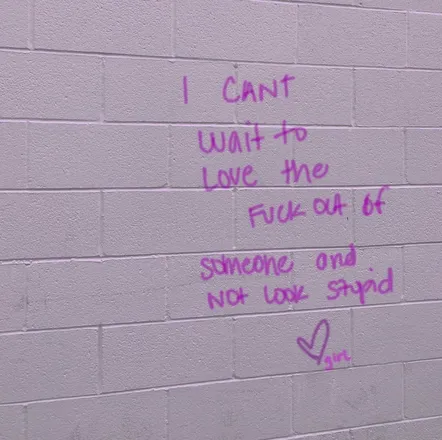 I CANT
wait to
Love the
FUCK OUt of
someone and
NOt Look stupid
girl